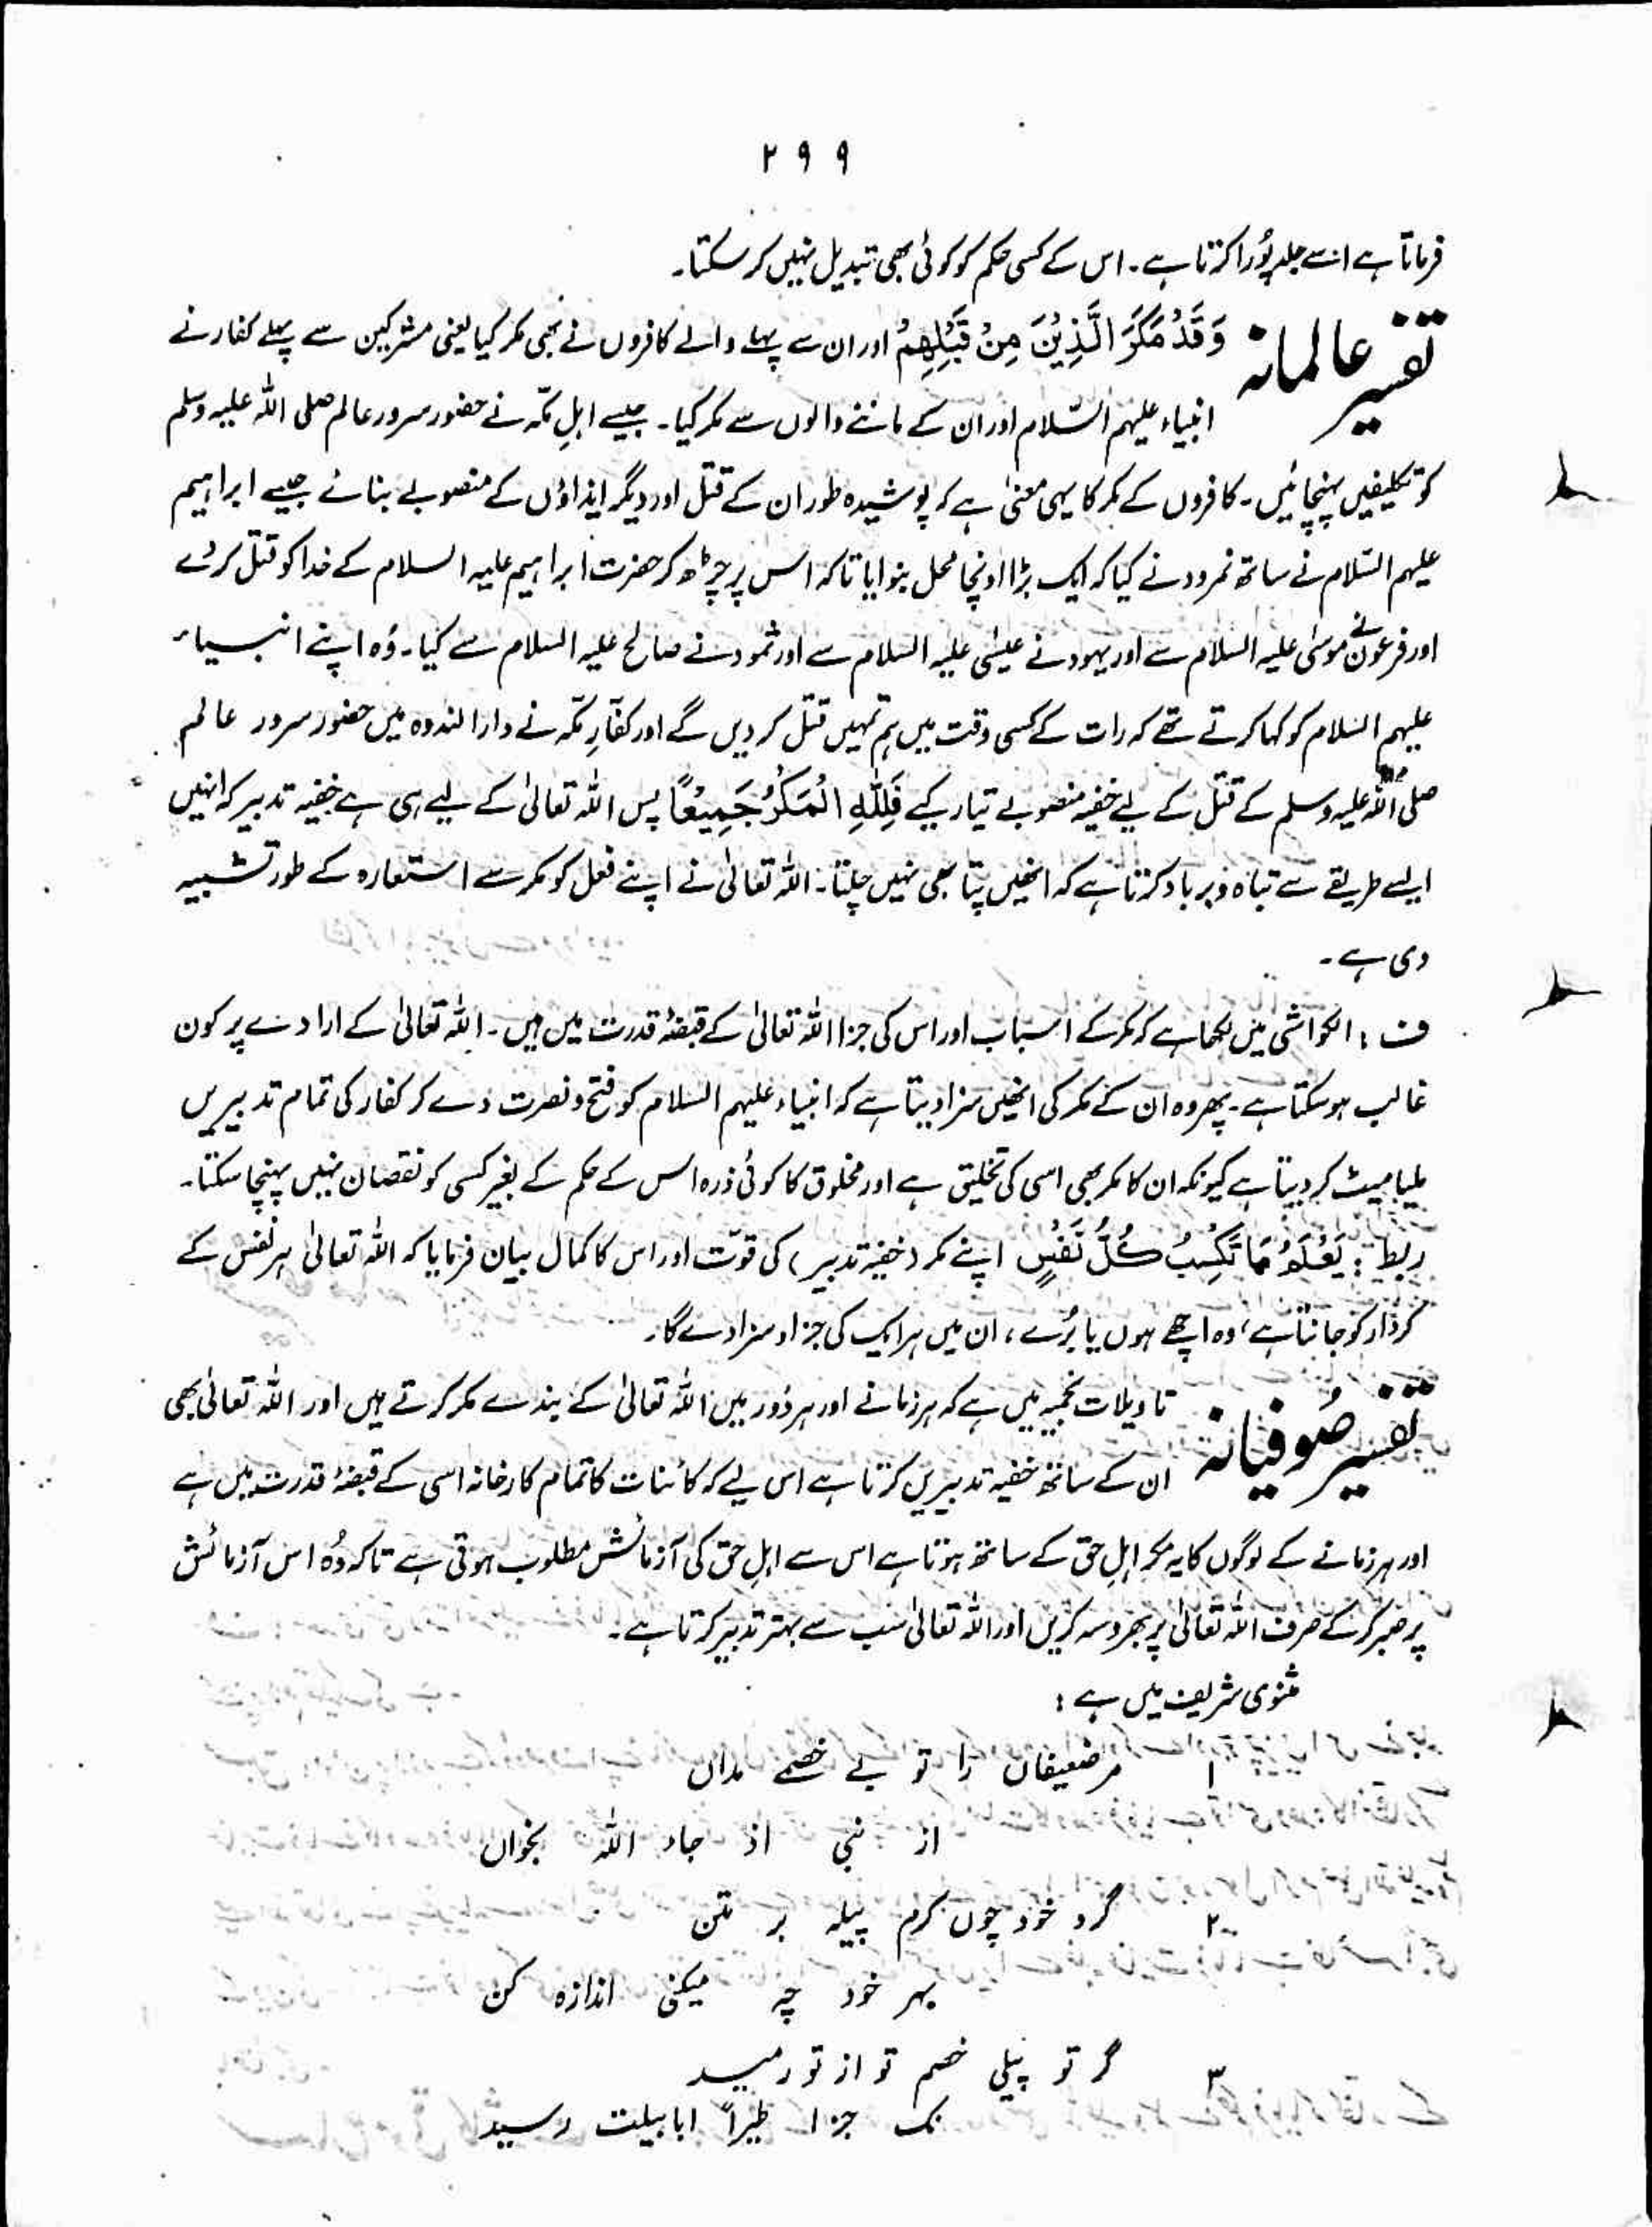 ۲۹۹
فرماتا ہے اسے جلد پُورا کرتا ہے۔ اس کے کسی حکم کو کوئی بھی تبدیل نہیں کر سکتا۔
تفسیر عالمانہ
وَقَدْ مَكَرَ الَّذِيْنَ مِنْ قَبْلِهِمْ اور ان سے پہلے والے کافروں نے بھی مکر کیا یعنی مشرکین سے پہلے کفار نے
انبیاء علیہم السّلام اور ان کے ماننے والوں سے مکر کیا۔ جیسے اہلِ مکّہ نے حضور سرور عالم صلی اللہ علیہ وسلم
کو تکلیفیں پہنچائیں۔ کافروں کے مکر کا یہی معنیٰ ہے کہ پوشیدہ طور ان کے قتل اور دیگر ایذاؤں کے منصوبے بنائے جیسے ابراہیم
علیہم السّلام نے ساتھ نمرود نے کیا کہ ایک بڑا اونچا محل بنوایا تاکہ اس پر چڑھ کر حضرت ابراہیم علیہ السلام کے خدا کو قتل کرے
اور فرعون نے موسیٰ علیہ السلام سے اور یہود نے عیسٰی علیہ السلام سے اور ثمود نے صالح علیہ السلام سے کیا۔ وُہ اپنے انبیاء
علیہم السلام کو کہا کرتے تھے کہ رات کے کسی وقت میں ہم تمہیں قتل کر دیں گے اور کفّارِ مکّہ نے دارالندوہ میں حضور سرور عالم
صلی اللہ علیہ وسلم کے قتل کے لیے خفیہ منصوبے تیار کیے فَلِلّٰهِ الْمَكْرُ جَمِيْعًا پس اللہ تعالیٰ کے لیے ہی ہے خفیہ تدبیر کہ انہیں
ایسے طریقے سے تباہ و برباد کرتا ہے کہ انھیں پتا بھی نہیں چلتا۔ اللہ تعالیٰ نے اپنے فعل کو مکر سے استعارہ کے طور تشبیہ
دی ہے۔
ف : الکواشی میں لکھا ہے کہ مکر کے اسباب اور اس کی جزا اللہ تعالیٰ کے قبضۂ قدرت میں ہیں۔ اللہ تعالیٰ کے ارادے پر کون
غالب ہو سکتا ہے۔ پھر وہ ان کے مکر کی انھیں سزا دیتا ہے کہ انبیاء علیہم السلام کو فتح و نصرت دے کر کفار کی تمام تدبیریں
ملیامیٹ کر دیتا ہے کیونکہ ان کا مکر بھی اسی کی تخلیق ہے اور مخلوق کا کوئی ذرہ اس کے حکم کے بغیر کسی کو نقصان نہیں پہنچا سکتا۔
ربط : يَعْلَمُ مَا تَكْسِبُ كُلُّ نَفْسٍ اپنے مکر (خفیہ تدبیر) کی قوّت اور اس کا کمال بیان فرمایا کہ اللہ تعالیٰ ہر نفس کے
کردار کو جانتا ہے، وہ اچھے ہوں یا بُرے، ان میں ہر ایک کی جزا و سزا دے گا۔
تفسیر صُوفیانہ
تاویلات نجمیہ میں ہے کہ ہر زمانے اور ہر دَور میں اللہ تعالیٰ کے بندے مکر کرتے ہیں اور اللہ تعالیٰ بھی
ان کے ساتھ خفیہ تدبیریں کرتا ہے اس لیے کہ کائنات کا تمام کارخانہ اسی کے قبضۂ قدرت میں ہے
اور ہر زمانے کے لوگوں کا یہ مکر اہلِ حق کے ساتھ ہوتا ہے اس سے اہلِ حق کی آزمائش مطلوب ہوتی ہے تاکہ وُہ اس آزمائش
پر صبر کر کے صرف اللہ تعالیٰ پر بھروسہ کریں اور اللہ تعالیٰ سب سے بہتر تدبیر کرتا ہے۔
مثنوی شریف میں ہے :
۱ مر ضعیفان را تو بے خصمے مدان
از نبی اذ جاء اللہ بخواں
۲ گرد خود چوں کرم پیلہ بر متن
بہر خود چہ میکنی اندازہ کن
۳ گر تو پیلی خصم تو از تو رمید
نک جزا طیراً ابابیلت رسید